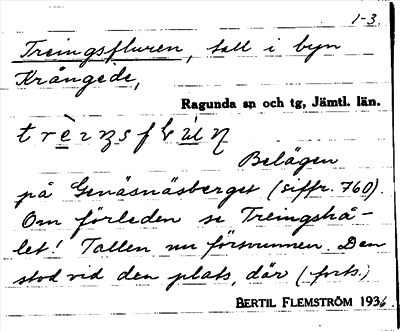 1-3.
Treingsfluren, tall i byn
Krångede,
Ragunda sn och tg, Jämtl. län.
Belägen
på Genäsnäsberget (siffr. 760).
Om förleden se Treingshå-
let! Tallen nu försvunnen. Den
stod vid den plats, där (forts.)
BERTIL FLEMSTRÖM 1936.